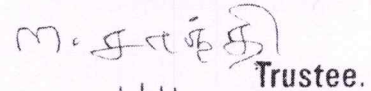 ന. சாந்தி
Trustee.